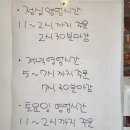 · 점심 영업시간
11~2시까지 주문
2시30분마감
· 저녁 영업시간
5~7시까지 주문
7시30분마감
· 토요일 영업시간
11~2시까지 주문